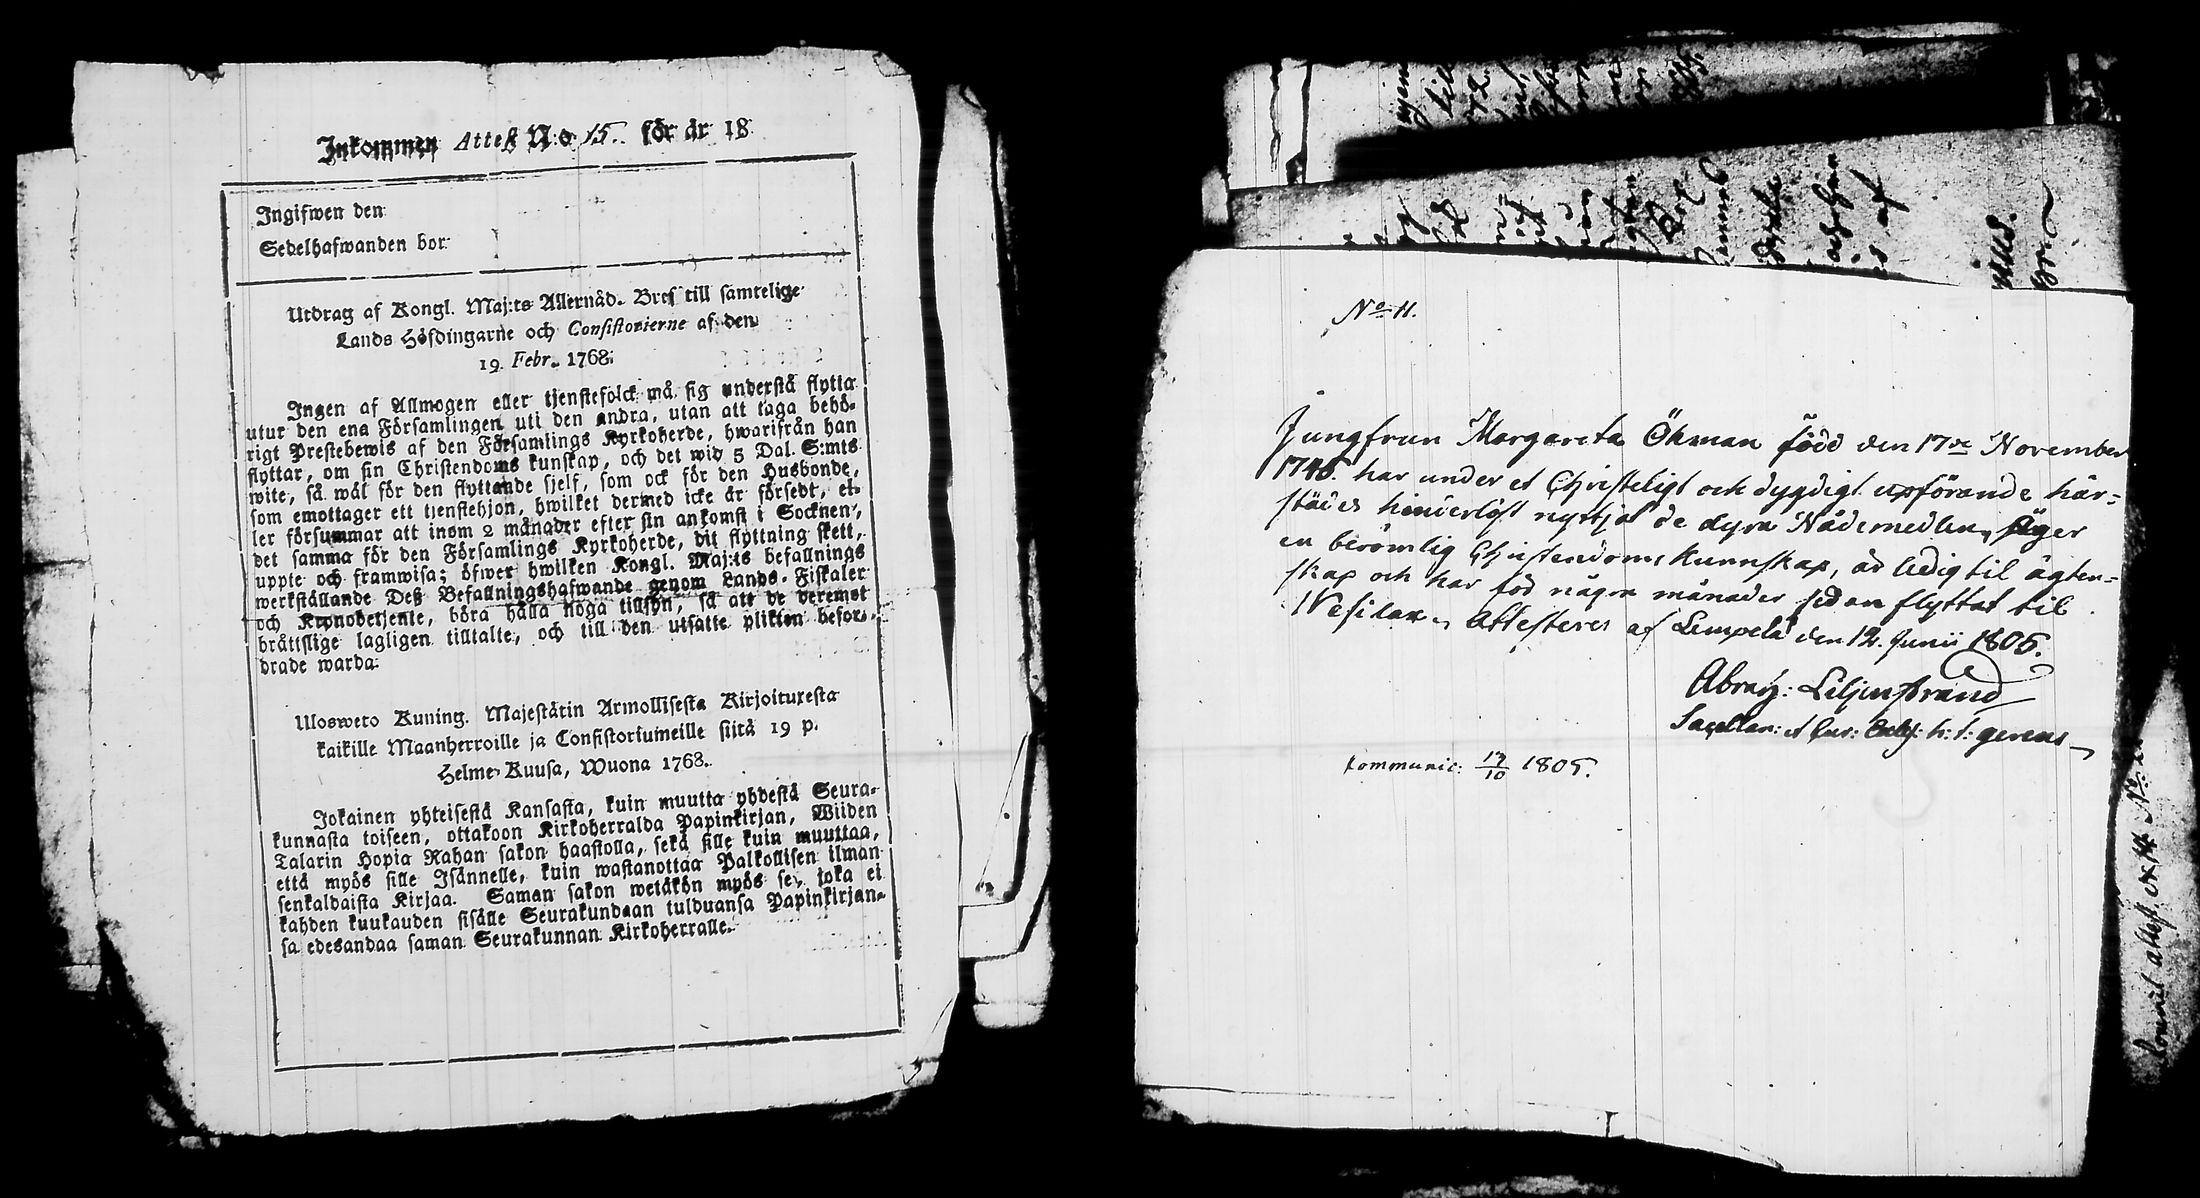 Inkommen Attest N:o 15. för år 18
Ingifwen den
Sedelhafwanden bor
Utdrag af Kongl. Maj:ts Allernåd. Bref till samtelige
Lands Höfdingarne och Consistorierne af den
19. Febr. 1768.
Ingen af Allmogen eller tjenstefolck må sig understå flytta
utur den ena Församlingen uti den andra, utan att taga behö-
rigt Prestebewis af den Församlings Kyrkoherde, hwarifrån han
flyttar, om sin Christendoms kunskap, och det wid 5 Dal. S:mts
wite, så wäl för den flyttande sjelf, som ock för den Husbonde,
som emottager ett tjenstehjon, hwilket dermed icke är försedt, el-
ler försummar att inom 2 månader efter sin ankomst i Socknen,
det samma för den Församlings Kyrkoherde, dit flyttning skett,
uppte och framwisa; öfwer hwilken Kongl. Maj:ts befallnings
werkställande Deß Befallningshafwande genom Lands-Fiskaler
och Kronobetjente, böra hålla noga tillsyn, så att de deremot
bråttslige lagligen tilltalte, och till den utsatte plikten befor-
drade warda.
Ulosweto Kuning. Majestätin Armollisesta Kirjoituxesta
kaikille Maanherroille ja Consistoriumeille siitä 19 p.
Helme-Kuusa, Wuona 1768.
Jokainen yhteisestä Kansasta, kuin muutta yhdestä Seura-
kunnasta toiseen, ottakoon Kirkoherralda Papinkirjan, Wiiden
Talarin Hopia Rahan sakon haastolla, sekä sille kuin muuttaa,
että myös sille Isännelle, kuin wastanottaa Palkollisen ilman
senkaldaista Kirjaa. Saman sakon wetäkön myös se, joka ei
kahden kuukauden sisälle Seurakundaan tulduansa Papinkirjan-
sa edesandaa saman Seurakunnan Kirkoherralle.
No 11.
Jungfrun Margareta Öhman född den 17de November
1745. har under et Christeligt och dygdigt upförande här-
städes hinderlöst nyttjat de dyra Nådemedlen, äger
en berömlig Christendoms kunnskap, är ledig til ägten-
skap och har för några månader sedan flyttat til
Wesilax, Attesteres af Lempelä den 12. Junii 1805.
Abrah: Liljenstrand
Sacellan: et Cur: h: t: gerens
Communic: 17/10 1805.